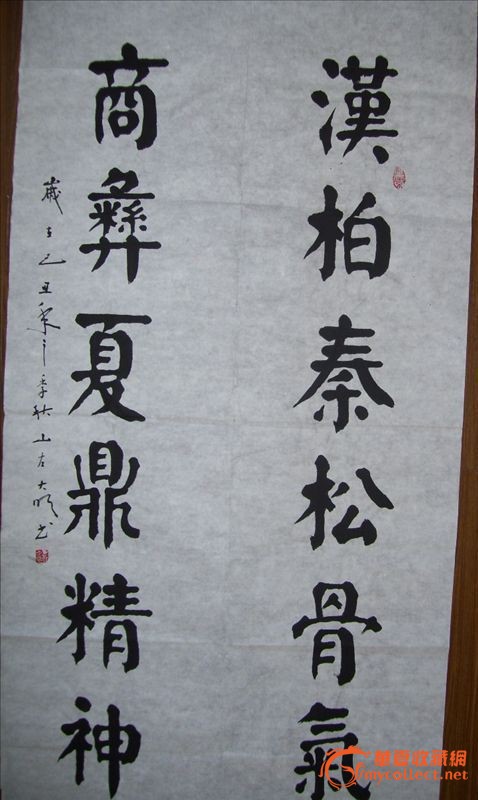 漢柏秦松骨氣
商彝夏鼎精神
歲在己丑年之季秋山右大順书
華夏收藏網
mycollect.net